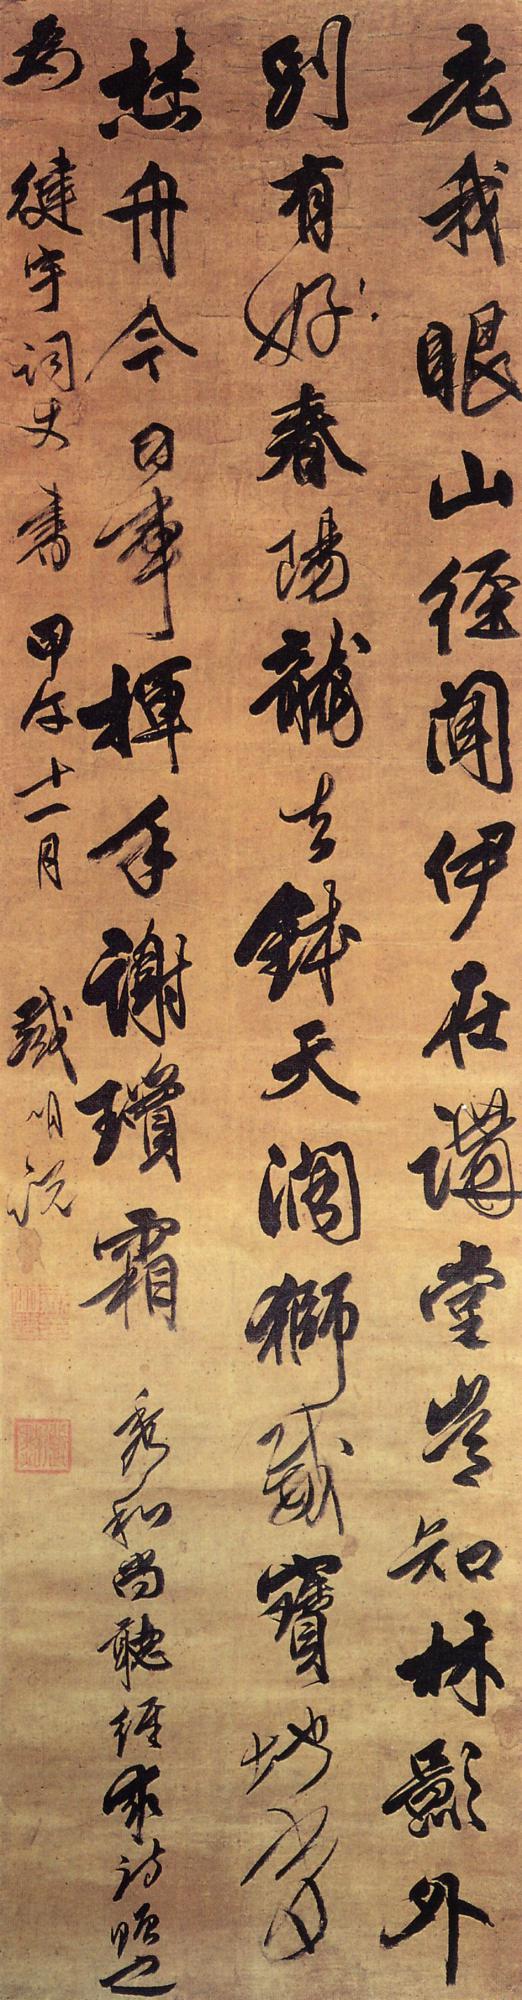 老我眼山徑聞伊在講堂豈知林影外
別有好春陽龍去鉢天濶獅威寶地香
焚舟今日事揮手謝瓊霜 秀和尚聽經求詩贈之
為健宇詞丈書甲午十一月 戴明說